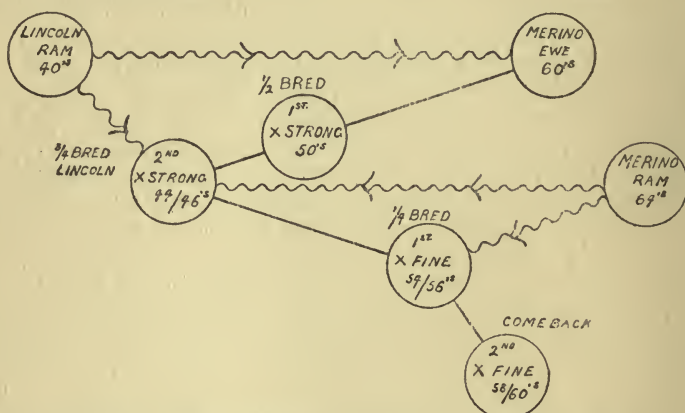 LINCOLN
RAM
40'S
MERINO
EWE
60'S
1/2 BRED
1ST
X STRONG
50'S
3/4 BRED
LINCOLN
2ND
X STRONG
44/46'S
MERINO
RAM
64'S
1/4 BRED
1ST
X FINE
54/56'S
COMEBACK
2ND
X FINE
58/60'S